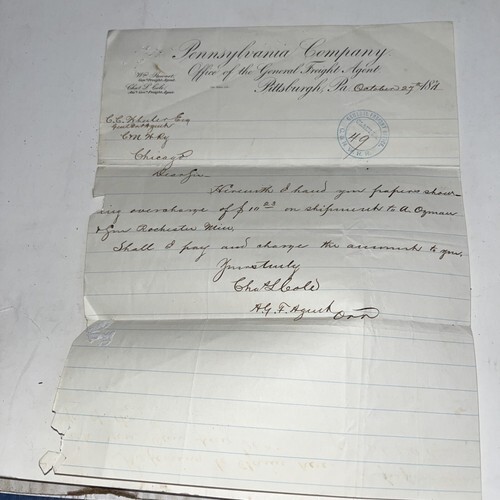 Pennsylvania Company
Office of the General Freight Agent
Chas. L. Cole,
Pittsburgh, Pa. October 29th 188
C.C. Wheeler Esq
Genl Frt Agent
C & N W Ry
Chicago
Dear Sir
49
Herewith I hand you papers show-
ing overcharge of $10 on shipment to A Ozmun
& Son Rochester Minn.
Shall I pay and charge the amount to you,
Yours truly
Chas L Cole
A.G.F. Agent